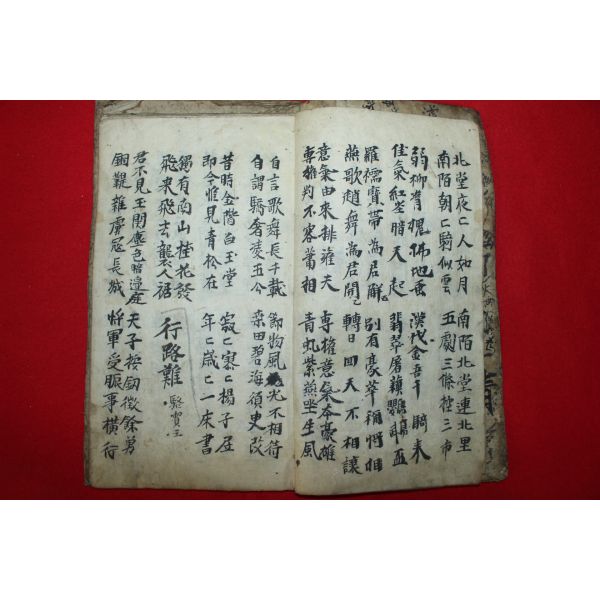 北堂夜ニ人如月
南陌朝ニ騎似雲
南陌北堂連北里
五劇三條控三市
弱柳青槐拂地垂
佳氣紅塵暗天起
漢代金吾千騎來
翡翠屠蘇鸚鵡盃
羅襦寶帶為君解
燕歌趙舞為君開
別有豪華稱將相
轉日回天不相讓
意氣由來排灌夫
專權判不容蕭相
專權意氣本豪雄
青虬紫燕坐生風
自言歌舞長千載
自謂驕奢凌五公
節物風光不相待
桑田碧海須史改
昔時金階白玉堂
即今惟見青松在
寂ニ寥ニ揚子居
年ニ歲ニ一床書
獨有南山桂花發
飛來飛去襲人裾
行路難 駱賓王
君不見玉関塵色暗邊庭
銅鞮雜虜冦長城
夫子按劒徵餘勇
將軍受脤事橫行